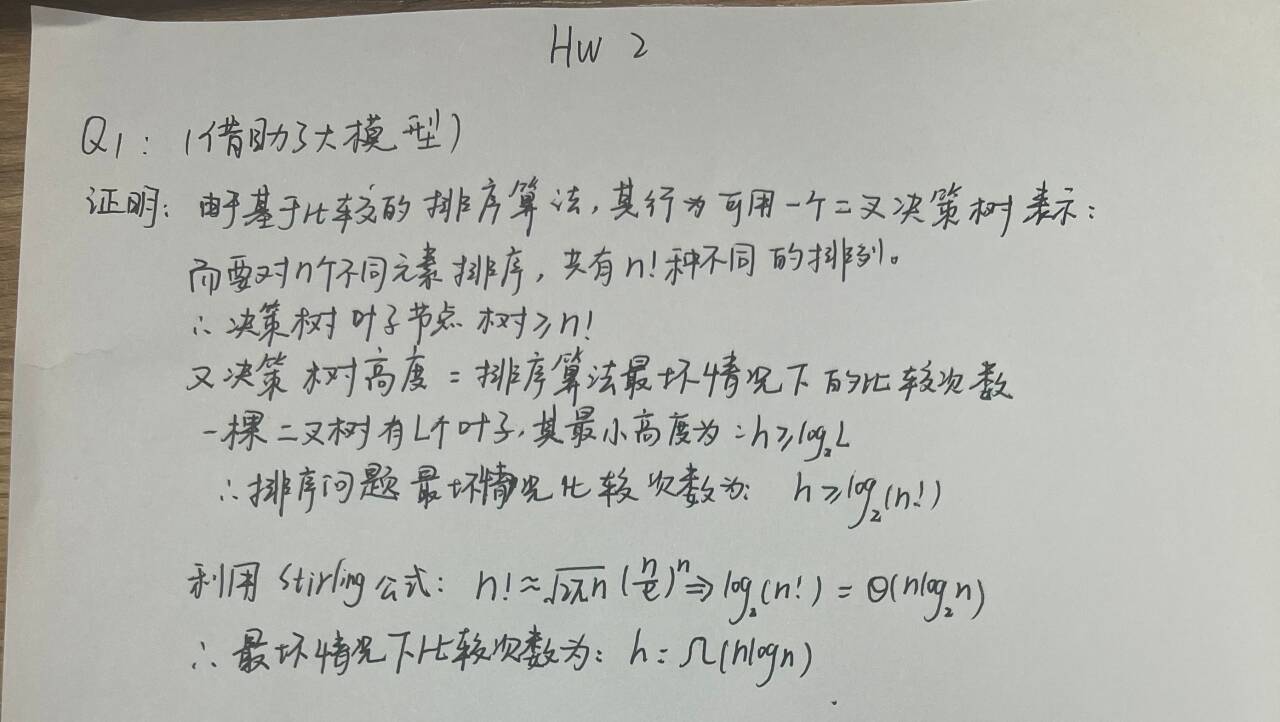 HW 2
Q1: (借助了大模型)
证明: 由于基于比较的排序算法, 其行为可用一个二叉决策树表示:
而要对n个不同元素排序, 共有n!种不同的排列。
∴决策树叶子节点树≥n!
又决策树高度=排序算法最坏情况下的比较次数
一棵二叉树有L个叶子, 其最小高度为:h≥log₂L
∴排序问题最坏情况比较次数为: h≥log₂(n!)
利用Stirling公式: n!≈√2πn (n/e)ⁿ⇒log₂(n!)=Θ(nlog₂n)
∴最坏情况下比较次数为: h=Ω(nlogn)